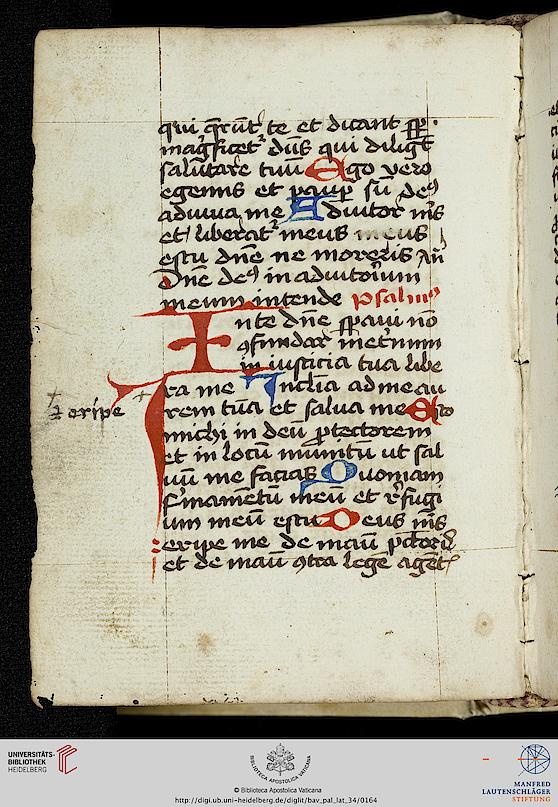 qui q̄rūt te et dicant sp̄
mag̅ficet᷑ dn̄s qui diligt̄
salutare tuū Ego vero
egenus et paup̱ sū deꝰ
adiuua me Adiutor m̄s
et liberat᷑ meus meus
estu dn̄e ne moreris An̄
Dn̄e deꝰ in adiutoriū
meum intende Psalmꝰ
Inte dn̄e sp̱aui nō
ꝯfundar inet̄num
in iusticia tua libe
ra me Inclīa ad me au
rem tuā et salua me Esto
michi in deū ꝓtectorem
et in locū munitū ut sal
uū me facias Quoniam
firmamētū meū et r̄fugi
um meū estu Deus m̄s
eripe me de manū pct̄oris
et de manū ꝯtra legē agēt᷑
+ et eripe +
UNIVERSITÄTS-
BIBLIOTHEK
HEIDELBERG
BIBLIOTECA APOSTOLICA VATICANA
© Biblioteca Apostolica Vaticana
http://digi.ub.uni-heidelberg.de/diglit/bav_pal_lat_34/0164
MANFRED
LAUTENSCHLÄGER
STIFTUNG